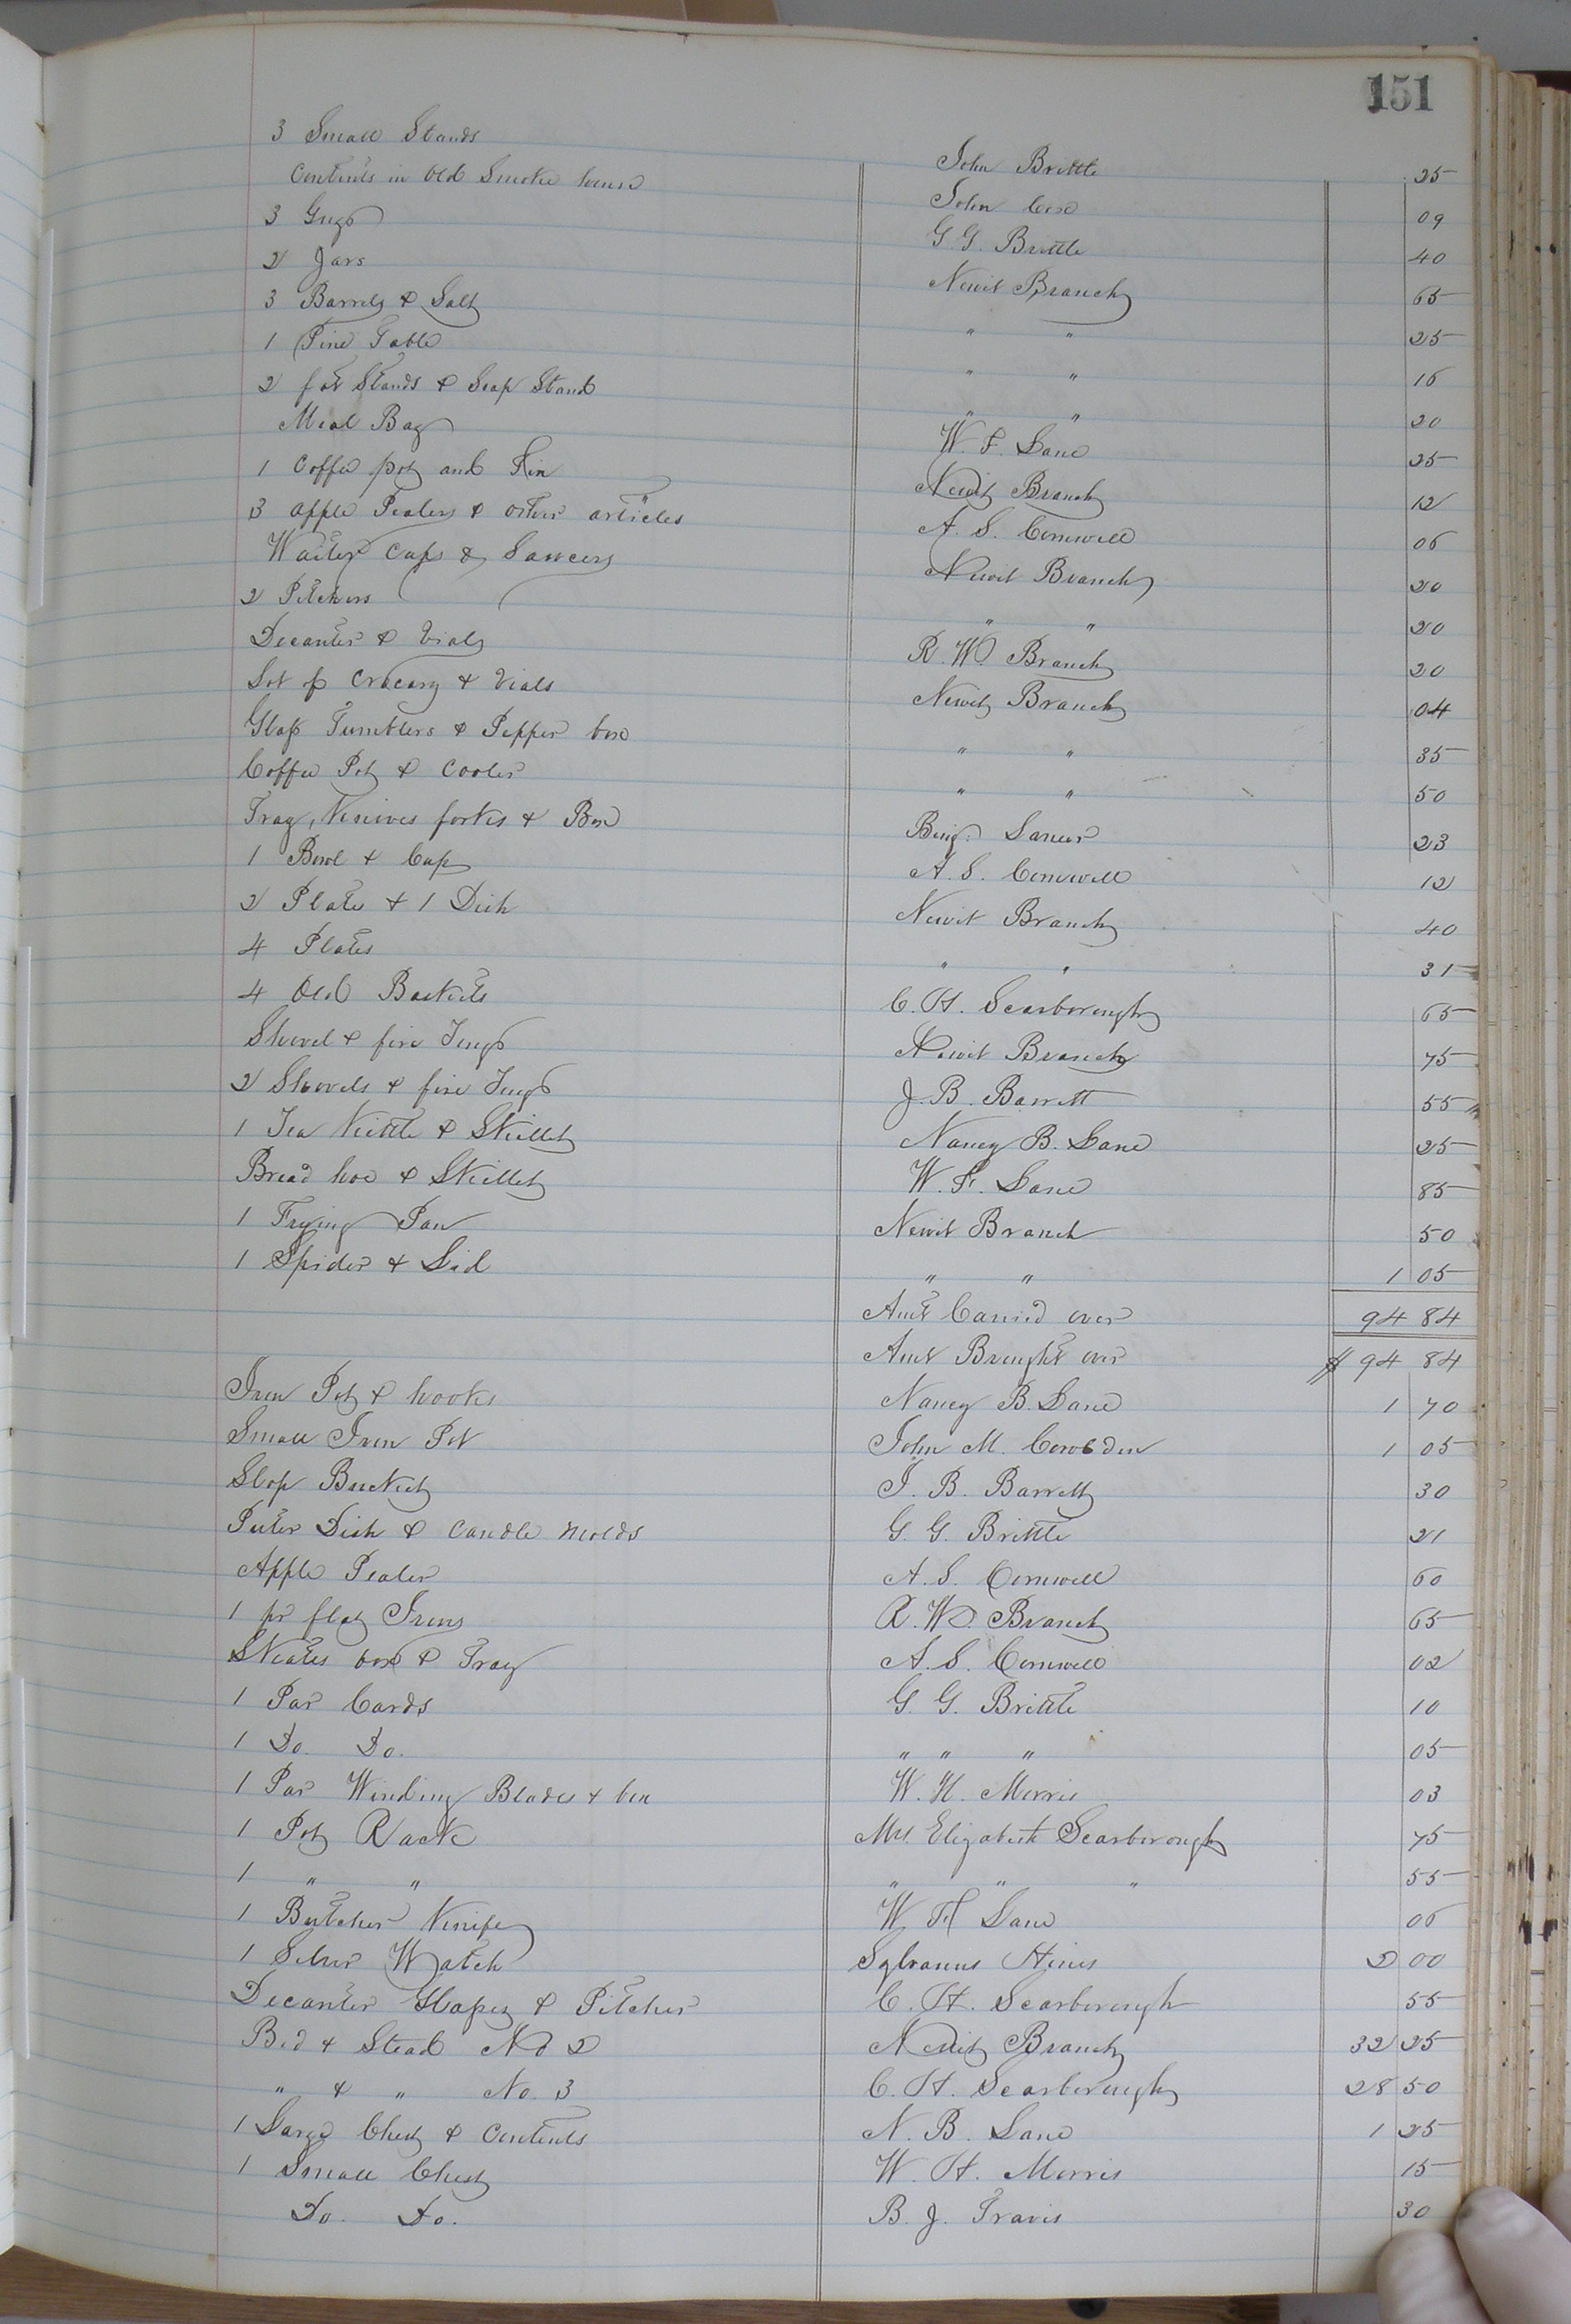 151
3 Small Stands John Brittle 25
Contents in Old Smoke house John Cox 09
3 Gugs G. G. Brittle 40
2 Jars Newit Branch 65
3 Barrels & Salt " " 25
1 Pine Table " " 16
2 fat Stands & Soap Stand " " 20
Meal Bag W. F. Lane 25
1 Coffee pot and Tin Newit Branch 12
3 apple Pealers & other articles A. S. Cornwell 06
Waiter Cups & Saucers Newit Branch 20
2 Pitchers " " 20
Decanter & Vials R. W. Branch 20
Lot of Crocary & Vials Newit Branch 04
Glass Tumblers & Pepper box " " 35
Coffee Pot & Cooler " " 50
Tray, Knives forks & Box Benj. Lanier 23
1 Bowl & Cup A. S. Cornwell 12
2 Plates & 1 Dish Newit Branch 40
4 Plates " " 31
4 Old Baskets C. H. Scarborough 65
Shovel & fire Tongs Newit Branch 75
2 Shovels & fire Tongs J. B. Barrett 55
1 Tea Kittle & Skillet Nancy B. Lane 25
Bread hoe & Skillet W. F. Lane 85
1 Frying Pan Newit Branch 50
1 Spider & Lid " " 1 05
Amt Carried over 94 84
Amt Brought over $ 94 84
Iron Pot & hooks Nancy B. Lane 1 70
Small Iron Pot John M. Cowden 1 05
Slop Bucket J. B. Barrett 30
Puter Dish & Candle Molds G. G. Brittle 21
Apple Pealer A. S. Cornwell 60
1 pr flat Irons R. W. Branch 65
Skates box & Tray A. S. Cornwell 02
1 Par Cards G. G. Brittle 10
1 Do. Do. " " " 05
1 Par Winding Blades & box W. H. Morris 03
1 Pot Rack Mrs. Elizabeth Scarborough 75
1 " " " " " 55
1 Butcher Knife W F Lane 06
1 Silver Watch Sylvanus Hines 2 00
Decanter Glasses & Pitcher C. H. Scarborough 55
Bed & Stead No 2 Newit Branch 32 25
" & " No. 3 C. H. Scarborough 28 50
1 Large Chest & Contents N. B. Lane 1 25
1 Small Chest W. H. Morris 15
Do. Do. B. J. Travis 30